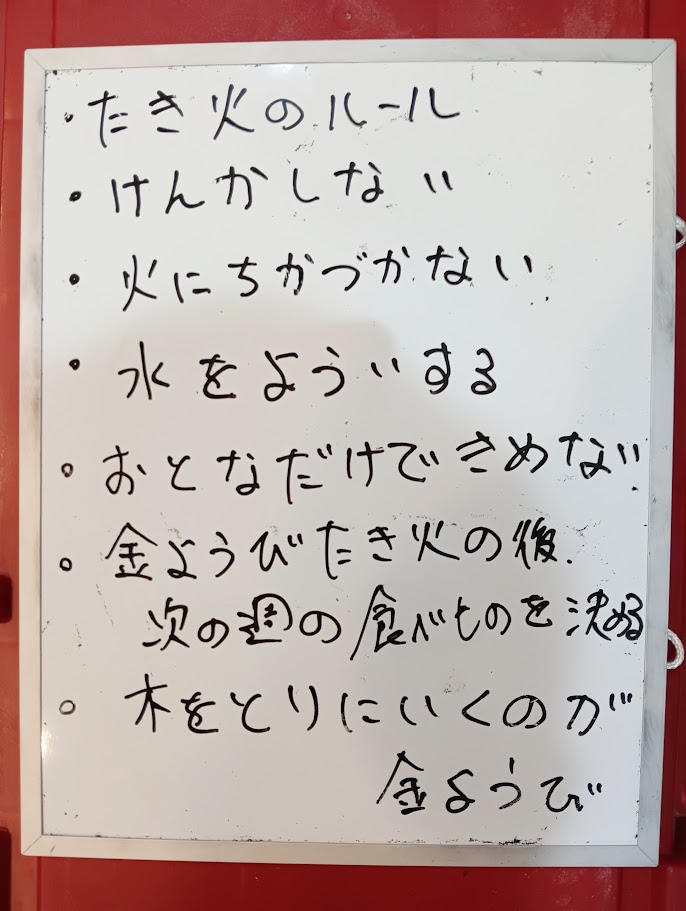 ・たき火のルール
・けんかしない
・火にちかづかない
・水をよういする
・おとなだけできめない
・金ようびたき火の後、
次の週の食べものを決める
・木をとりにいくのが
金ようび